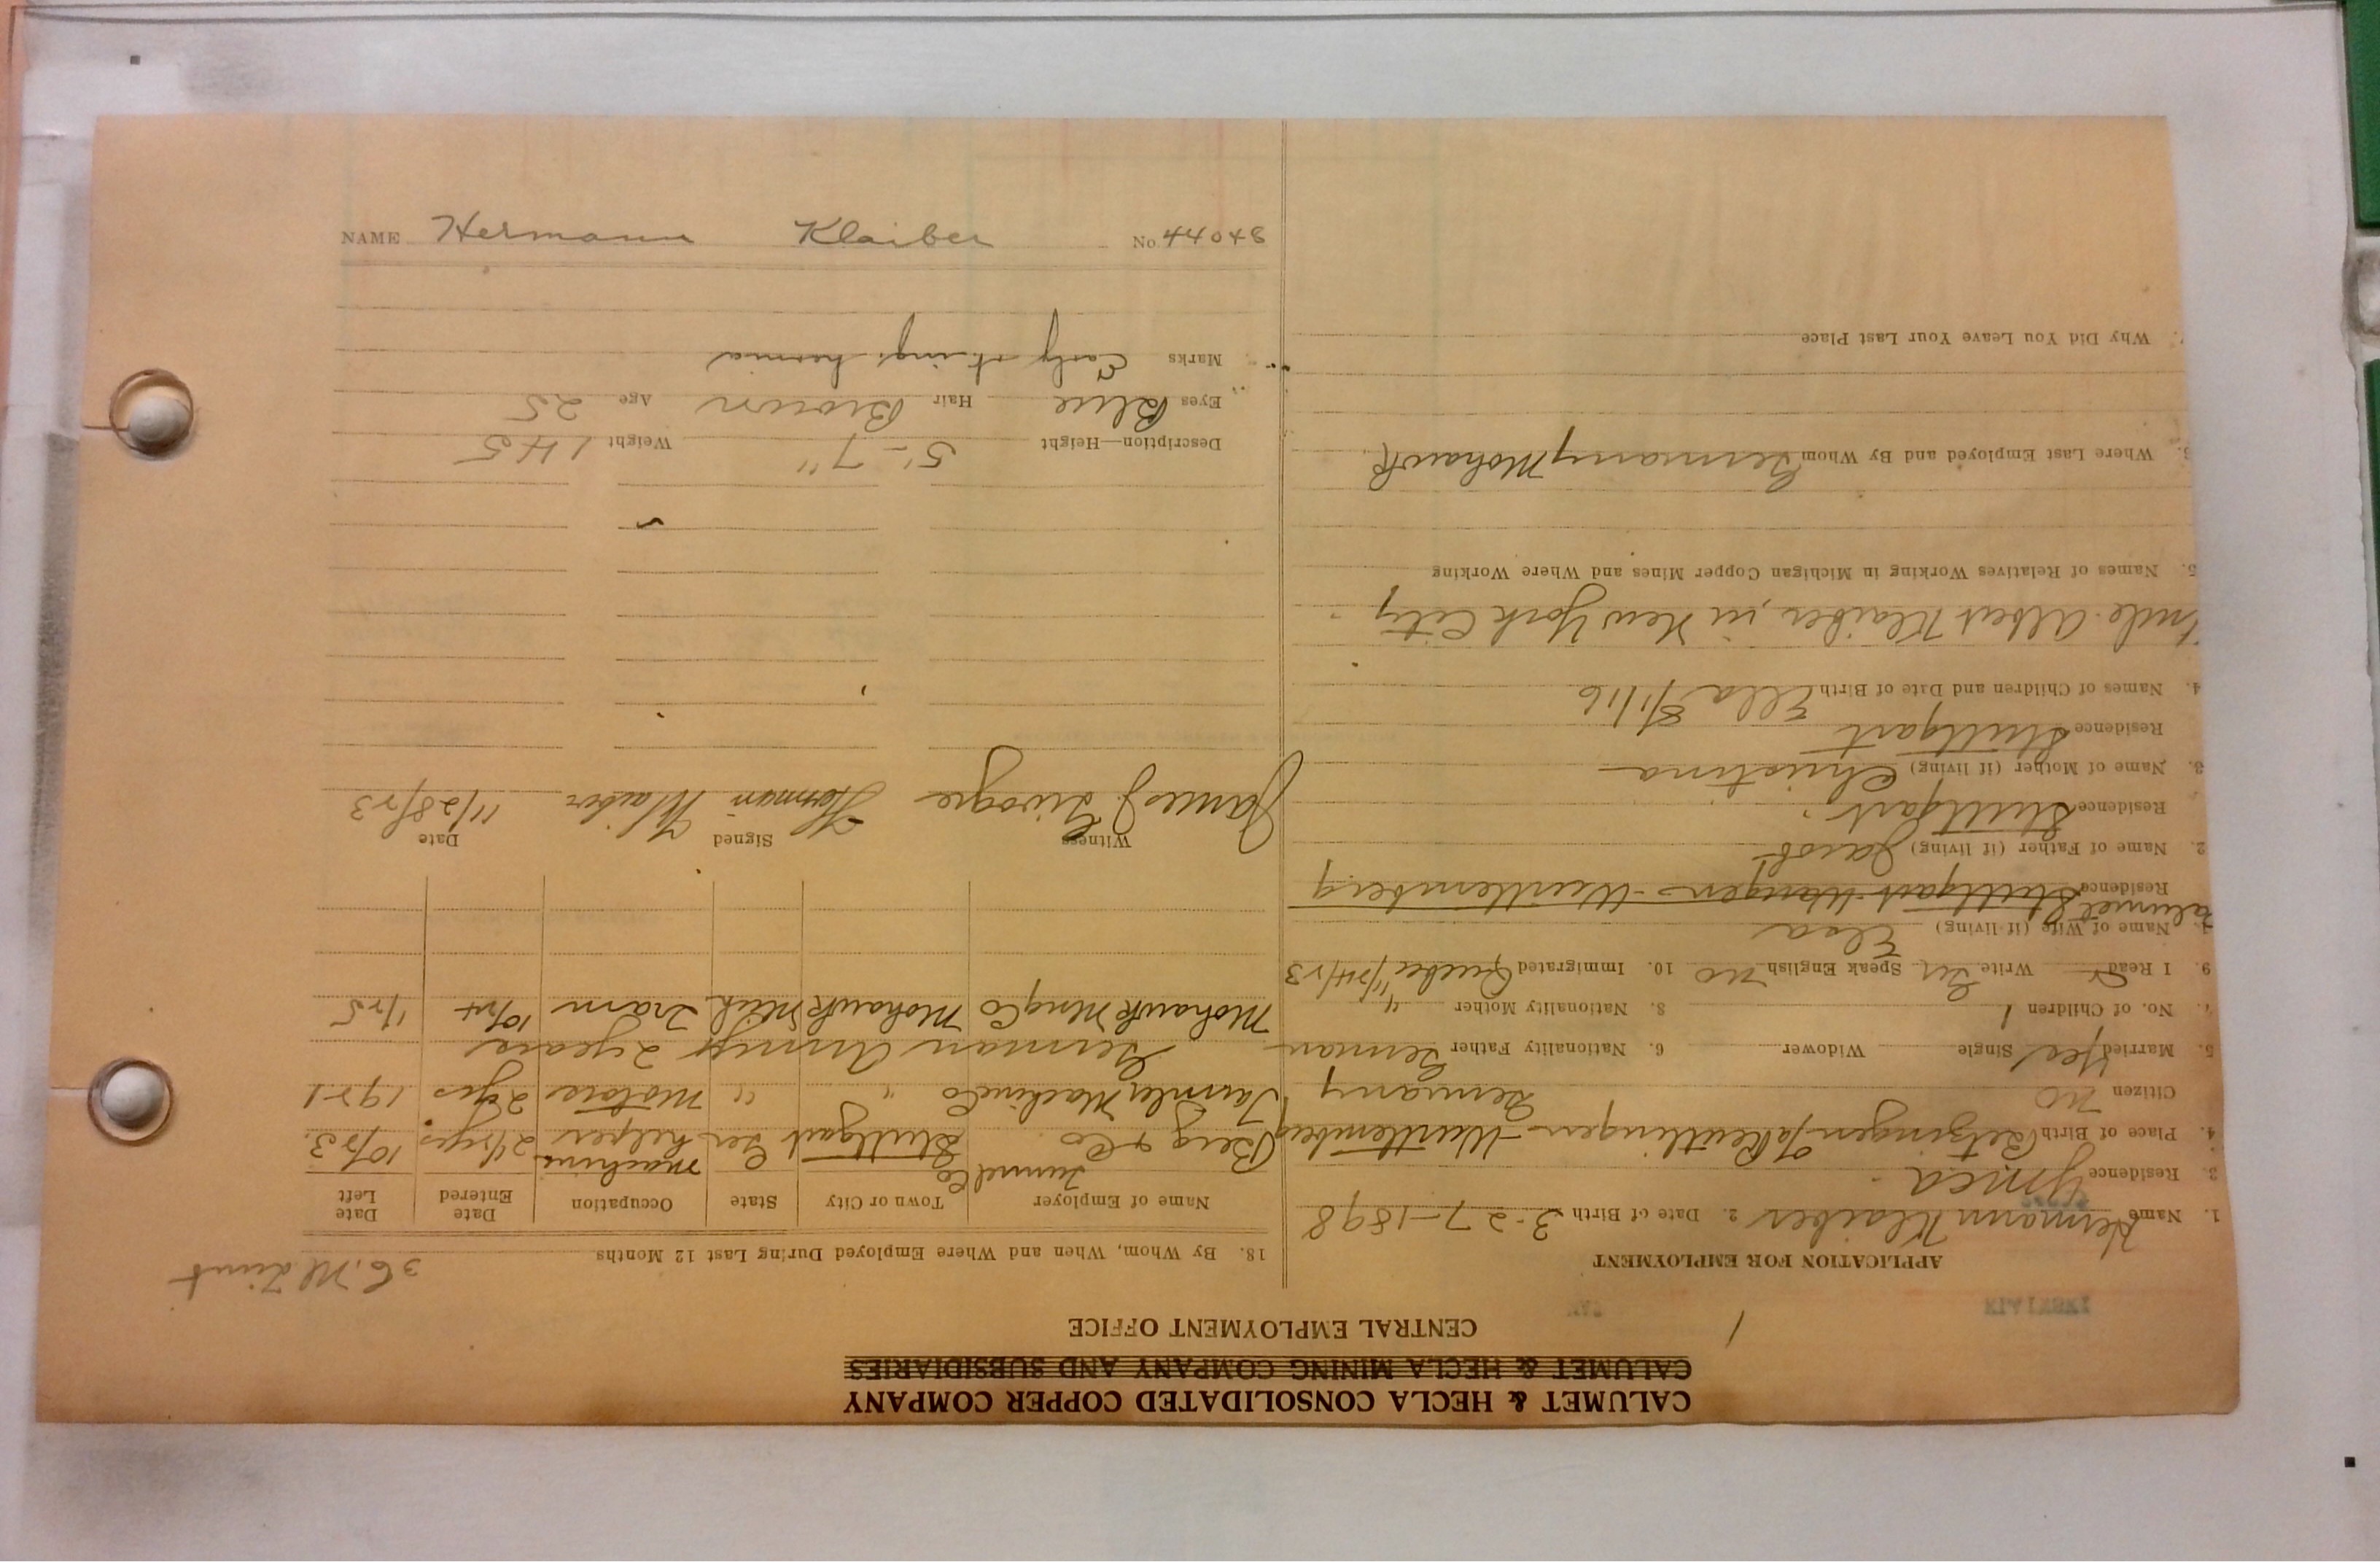 CALUMET & HECLA CONSOLIDATED COPPER COMPANY
CALUMET & HECLA MINING COMPANY AND SUBSIDIARIES
CENTRAL EMPLOYMENT OFFICE
1
APPLICATION FOR EMPLOYMENT
1. Name Hermann Klaiber 2. Date of Birth 3-27-1898
3. Residence Ymca
4. Place of Birth Betzingen Reutlingen-Wurttemberg
Citizen no Germany
5. Married Yes Single Widower 6. Nationality Father German
7. No. of Children 1 8. Nationality Mother "
9. I Read Write Ger Speak English no 10. Immigrated Quebec 11/24/23
Name of Wife (if living) Elsa
Calumet
Residence Stuttgart-Wangen-Wurttemberg
2. Name of Father (if living) Jacob
Residence Stuttgart
3. Name of Mother (if living) Christina
Residence Stuttgart
4. Names of Children and Date of Birth Ella 8/1/16
Uncle Albert Klaiber, in New York City
5. Names of Relatives Working in Michigan Copper Mines and Where Working
Where Last Employed and By Whom Germany Mohawk
Why Did You Leave Your Last Place
18. By Whom, When and Where Employed During Last 12 Months
Name of Employer Town or City State Occupation Date Entered Date Left
Tunnel Co machine
Berg & Co Stuttgart Ger helper 2 1/2 yrs. 10/23.
Machine Co " " 2 yrs 1921
German Army 2 years
Mohawk Mng Co Mohawk Mich Tram 10/24 1/25
Witness Signed Date
James J. Herman Klaiber 11/28/23
Description—Height 5'-7" Weight 145
Eyes Blue Hair Brown Age 25
Marks Early ring. hernia
NAME Hermann Klaiber No. 44048